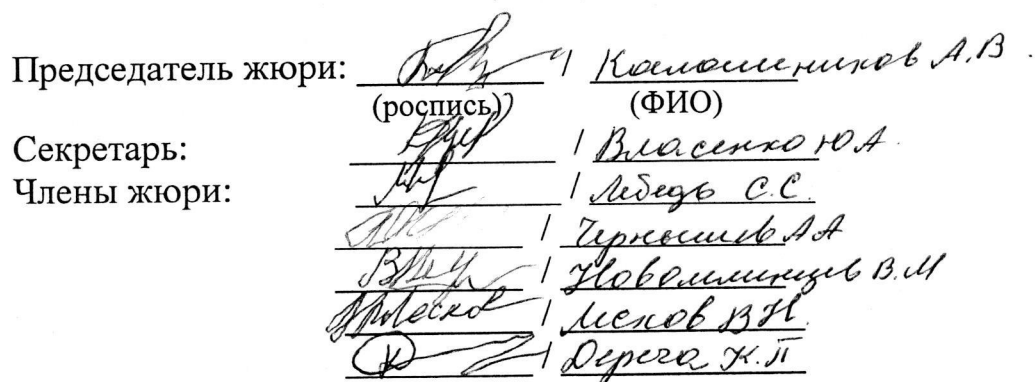 Председатель жюри: / Калашников А.В.
(роспись) (ФИО)
Секретарь: / Власенко Ю А.
Члены жюри: / Лебедь С.С.
/ Чернышев А А
/ В.М
/ Лесков В Н.
/ Дерега К.П